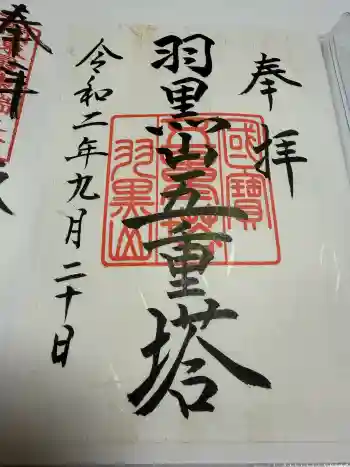 奉拝
羽黒山五重塔
令和二年九月二十日
國寶
五重塔
羽黒山
奉拝